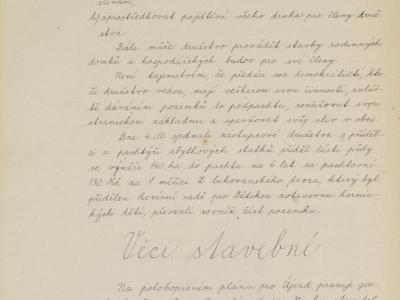 členům,
h) zprostředkovat pojištění všeho druhu pro členy druž-
stva.
Dále může družstvo prováděti stavby rodinných
domků a hospodářských budov pro své členy.
Není tajemstvím, že předáci soc. demokratičtí, kte-
ří družstvo vedou, mají veškerou svou činností, zvláš-
tě dáváním pozemků do podpachtu, rozšiřovat svou
stranickou základnu a upevňovat svůj vliv v obci.
Dne 4./10. sjednali zástupcové družstva s příděl-
ci a pachtýři zbytkových statků příděl části půdy
ve výměře 140 ha do pachtu na 6 let za pachtovní
130 Kč za 1 měřici. Z lukovanského dvora, který byl
přidělen Revírní radě pro Dětskou zotavovnu hornic-
kých dětí, převzali rovněž část pozemku.
Věci stavební
Na polohopisném plánu pro Újezd pracuje geo-